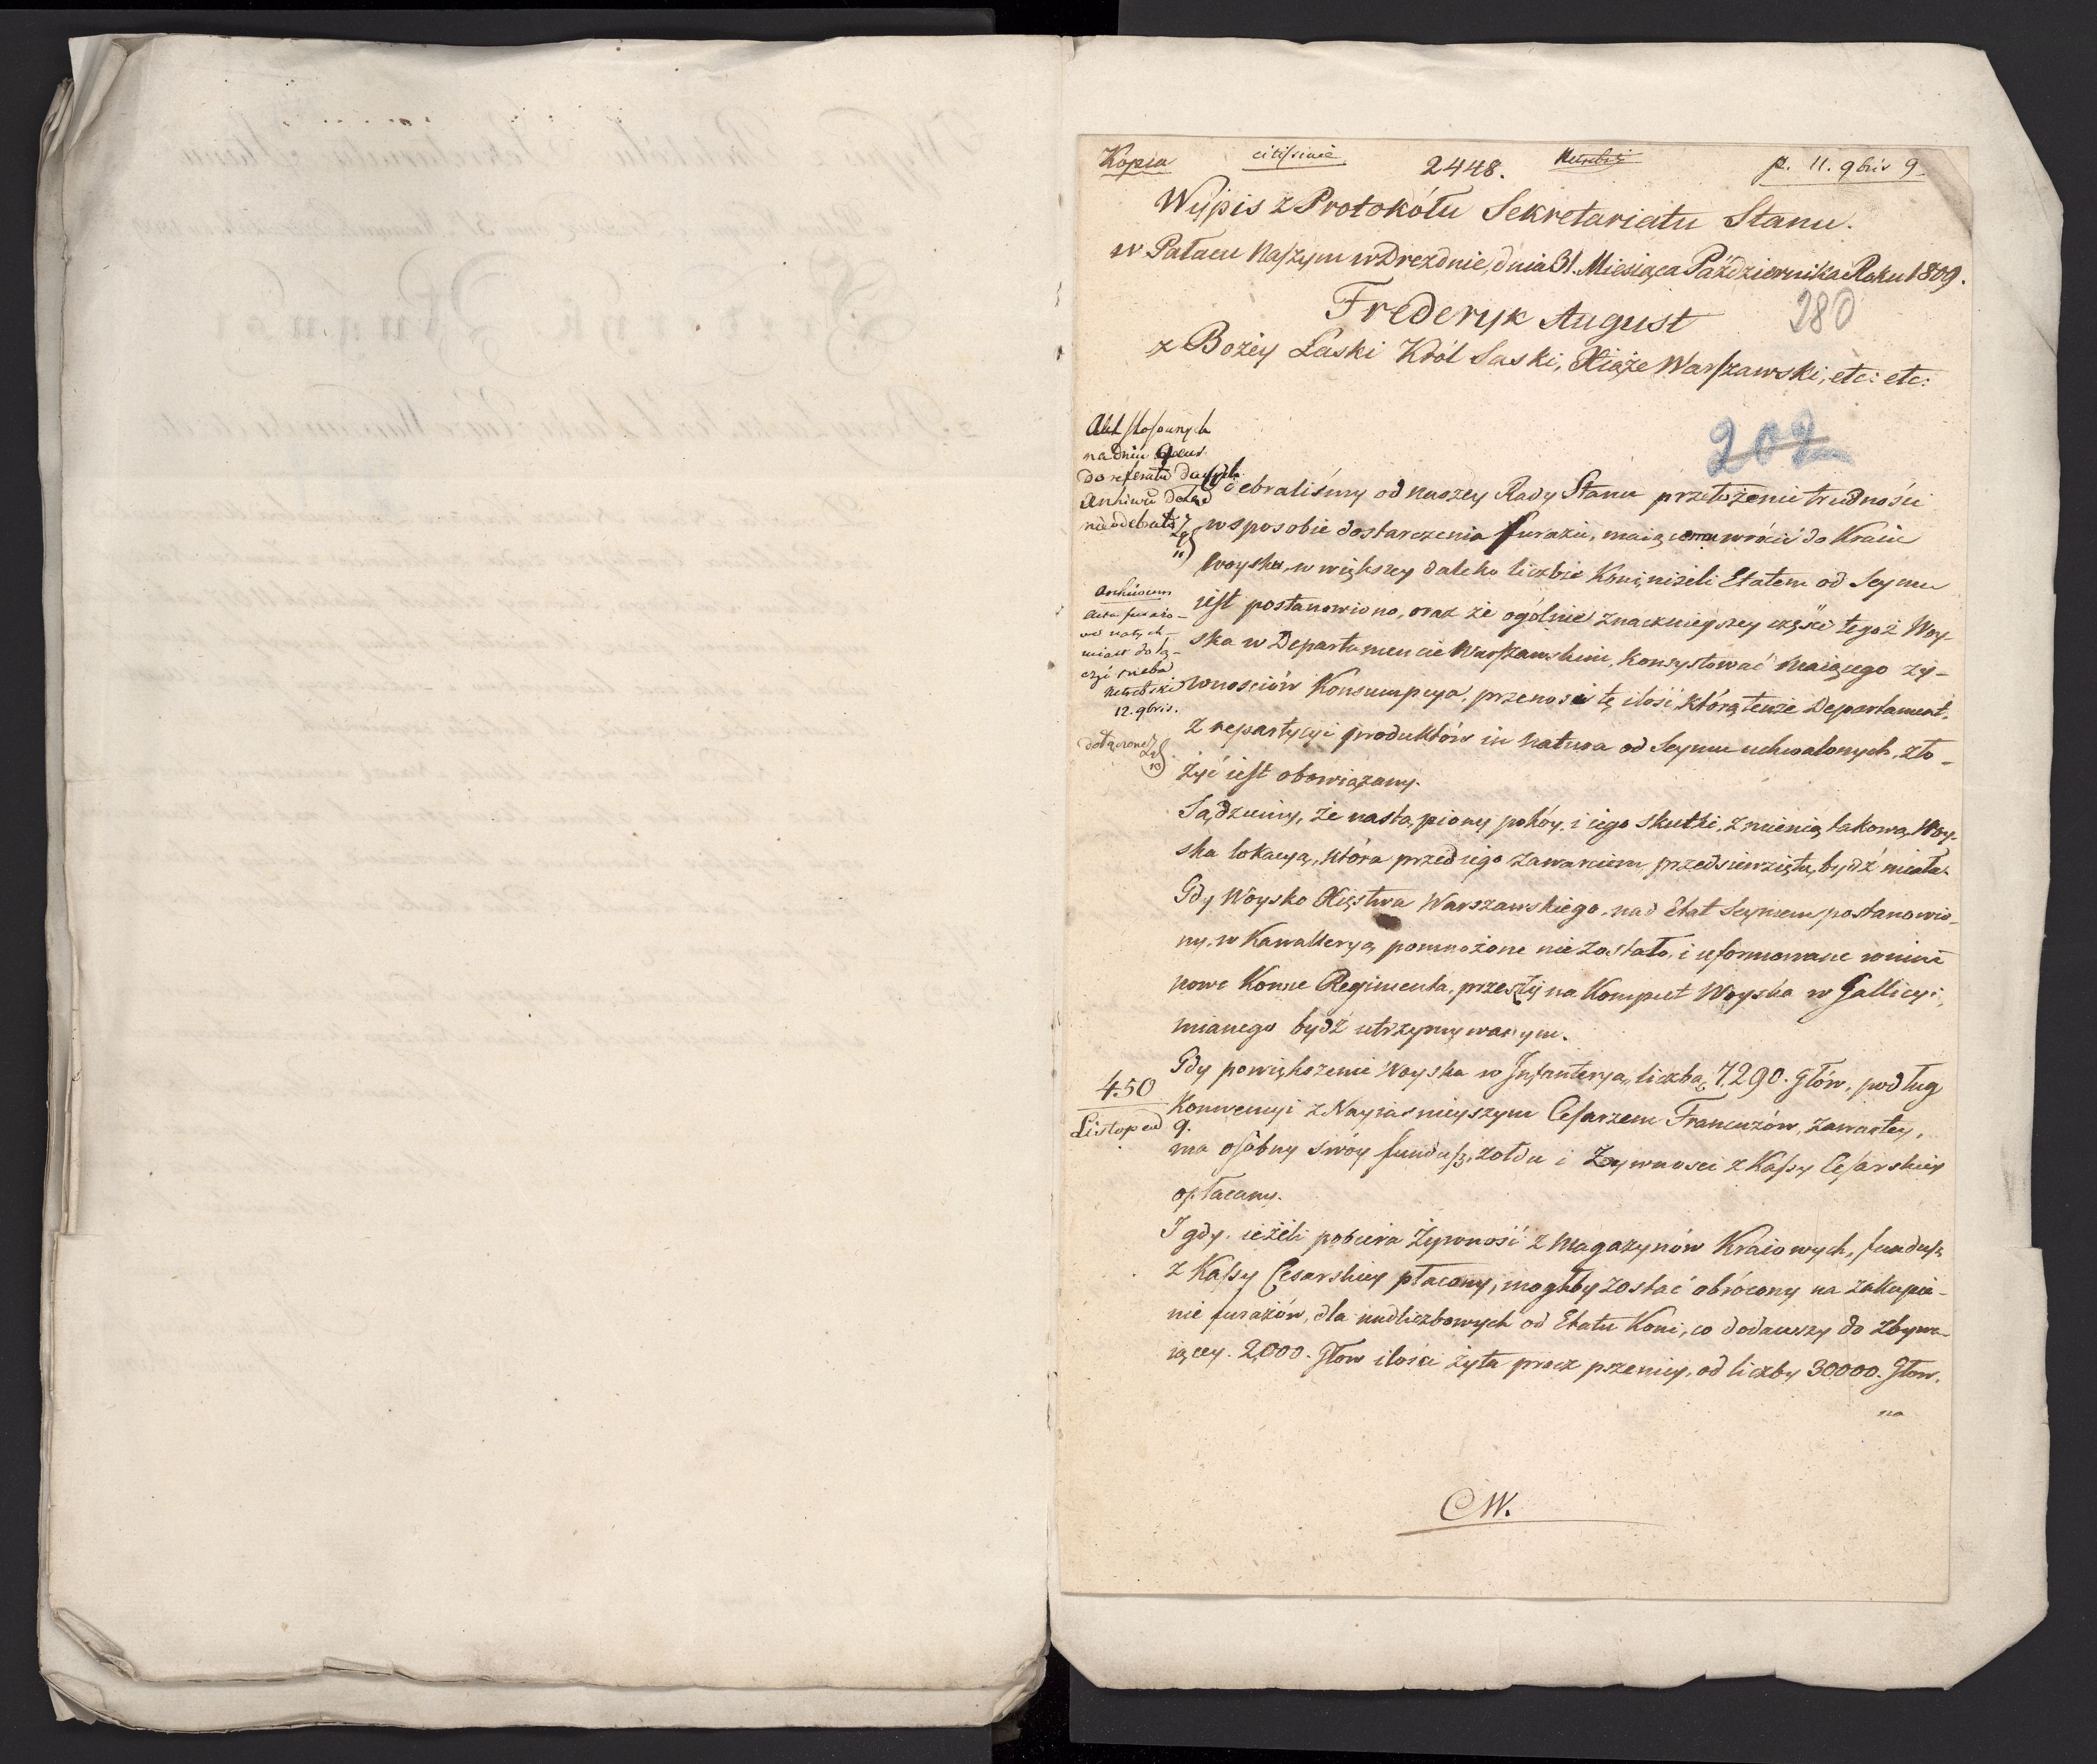 Kopia citissime 2448. p. 11. 9bris 9
Wypis z Protokółu Sekretariatu Stanu.
w Pałacu Naszym w Dreznie, dnia 31. Miesiąca Października Roku 1809.
Frederyk August
280
z Bożey Łaski Król Saski, Xiąże Warszawski, etc: etc:
202
Akt stosownych
na dniu
do referatu danych
Archiwu dotąd
nieodebrała
11
Odebraliśmy od naszey Rady Stanu przełożenie trudności
w sposobie dostarczenia furażu, maiącemu wrócić do Kraiu
Woysku, w większey daleko liczbie Koni, niżeli Etatem od Seymu
iest postanowiono, oraz że ogólnie znacznieyszey części tegoż Woy-
ska w Departamencie Warszawskim, konsystować maiącego ży-
wnościów Konsumpcya, przenosi tę ilość, którą tenże Departament,
z repartycyi produktów in natura od Seymu uchwalonych, zło-
żyć iest obowiązany.
Archiwum
Acta furażo-
we natych-
miast dołą-
czyć trzeba
Netrebski
12. 9bris.
dołączone
13
Sądziemy, że nastąpiony pokóy, i iego skutki, zmienią takową Woy-
ska lokacyą, która przed iego zawarciem, przedsięwziętą bydź miała.
Gdy Woysko Xięstwa Warszawskiego, nad Etat Seymem postanowio-
ny, w Kawalleryą pomnożone nie zostało, i uformowane w nim
nowe Konne Regimenta, przeszły na Komput Woyska w Gallicyi,
mianego bydź utrzymywanym.
Gdy powiększenie Woyska w Infanteryą, liczbą 7290. Głów, podług
Konwencyi z Nayiasnieyszym Cesarzem Francuzów, zawartey,
ma osobny swóy fundusz, żołdu i Żywności z Kassy Cesarskiey
opłacany.
450
Listopad 9.
I gdy, ieżeli pobiera Żywność z Magazynów Kraiowych, fundusz
z Kassy Cesarskiey płacony, mogłby zostać obrócony na zakupie-
nie furażów, dla nadliczbowych od Etatu Koni, co dodawszy do zbywa-
iącey 2,000. Głow ilości żyta prócz pszenicy, od liczby 30000. Głow.
na
CW.